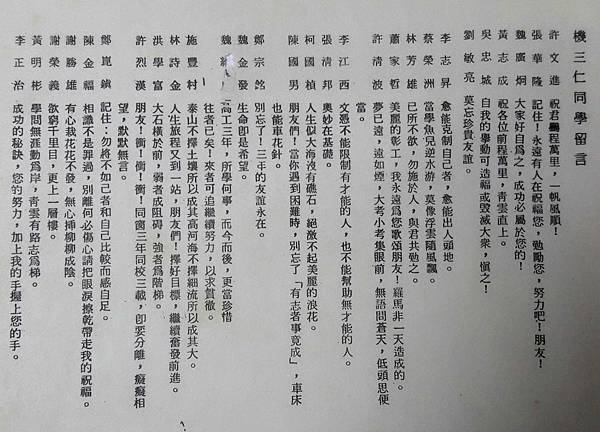 機三仁同學留言
許文進　祝君鵬程萬里，一帆風順！
張華隆　記住！永遠有人在祝福您，勉勵您，努力吧！朋友！
魏廣炯　大家好自為之，成功必屬於您的！
黃志成　祝各位前程萬里，青雲直上。
吳忠城　自我的舉動可造福或毀滅大衆，愼之！
劉敏亮　莫忘珍貴友誼。
李志昇　愈能克制自己者，愈能出人頭地。
蔡榮洲　當學魚兒逆水游，莫像浮雲隨風飄。
林芳雄　己所不欲，勿施於人，與君共勉之。
蕭家哲　美麗的彰工，我永遠為您歌頌朋友！羅馬非一天造成的。
許清波　夢已遠，遠如煙，大考小考集眼前，無語問蒼天，低頭思便
當。
李江西　文憑不能限制有才能的人，也不能幫助無才能的人。
張清邦　奧妙在基礎。
柯國楨　人生似大海沒有礁石，絕激不起美麗的浪花。
陳國男　朋友們！當你遇到困難時，別忘了「有志者事竟成」，車床
也能車花針。
鄭宗　別忘了！三年的友誼永在。
魏金發　生命卽是希望。
魏　高工三年，所學何事，而今而後，更當珍惜
往者已矣！來者可追繼續努力，以求貫徹。
施豐村　泰山不擇土壤所以成其高河海不擇細流所以成其大。
林詩金　人生旅程又到一站，朋友們！擇好目標，繼續奮發前進。
洪學富　大石橫於前，弱者成阻碍，強者為階梯。
許烈漢　朋友！衝！衝！衝！同窗三年同校三載，卽要分離，癡癡相
望，默默無言。
鄭崑鎭　記住：勿將不如己者和自己比較而感自足。
陳金福　相識不是罪過，別離何必傷心請把眼淚擦乾帶走我的祝福。
謝勝雄　有心栽花花不發，無心揷柳柳成陰。
謝榮義　欲窮千里目，更上一層樓。
黃明彬　學問無涯勤為岸，青雲有路志為梯。
李正治　成功的秘訣，您的努力，加上我的手握上您的手。